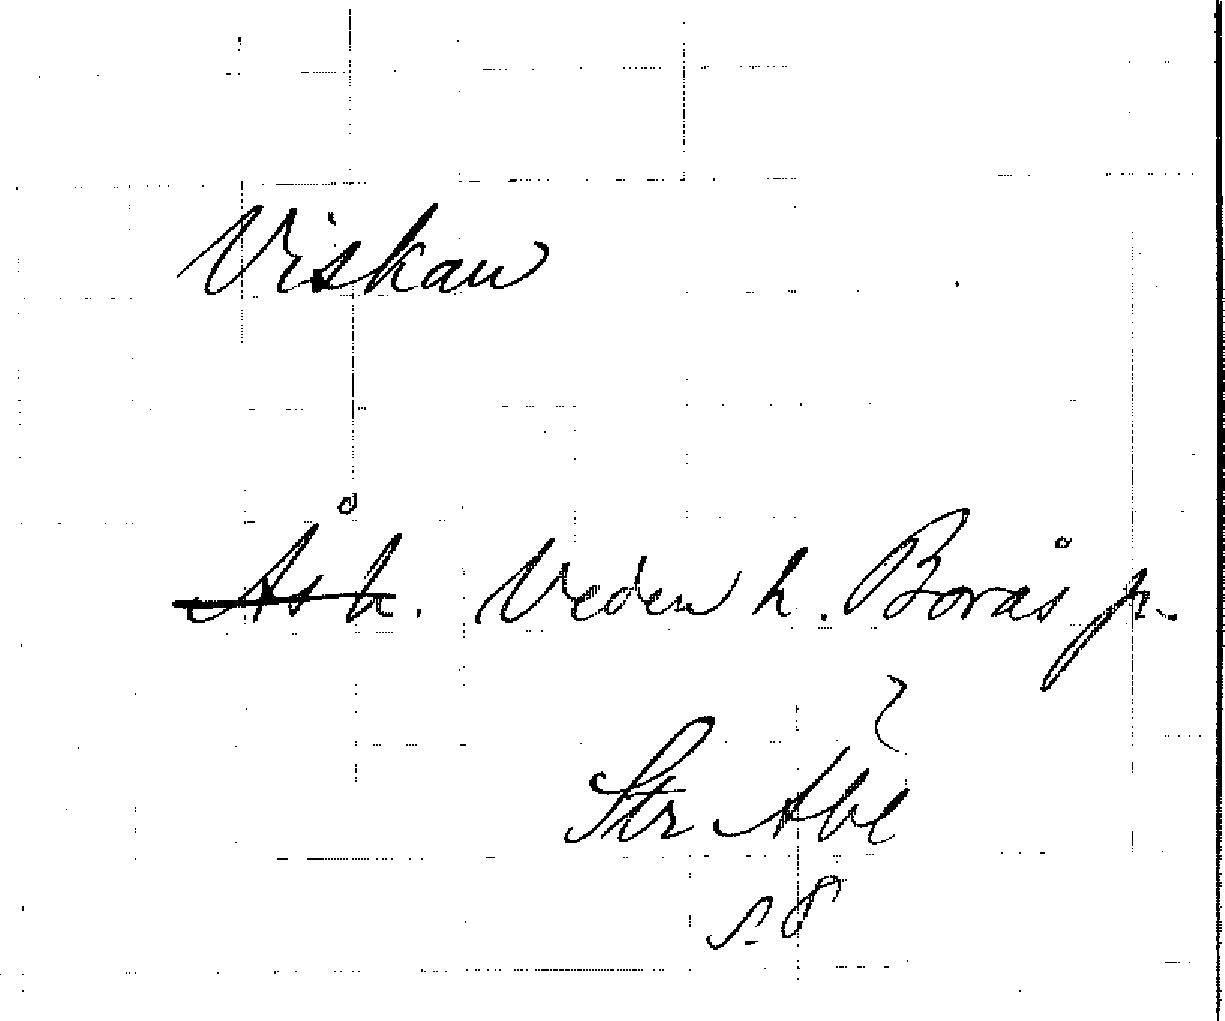 Viskan
Ås h. Veden h. Borås jr.
Str Abe
s. 8